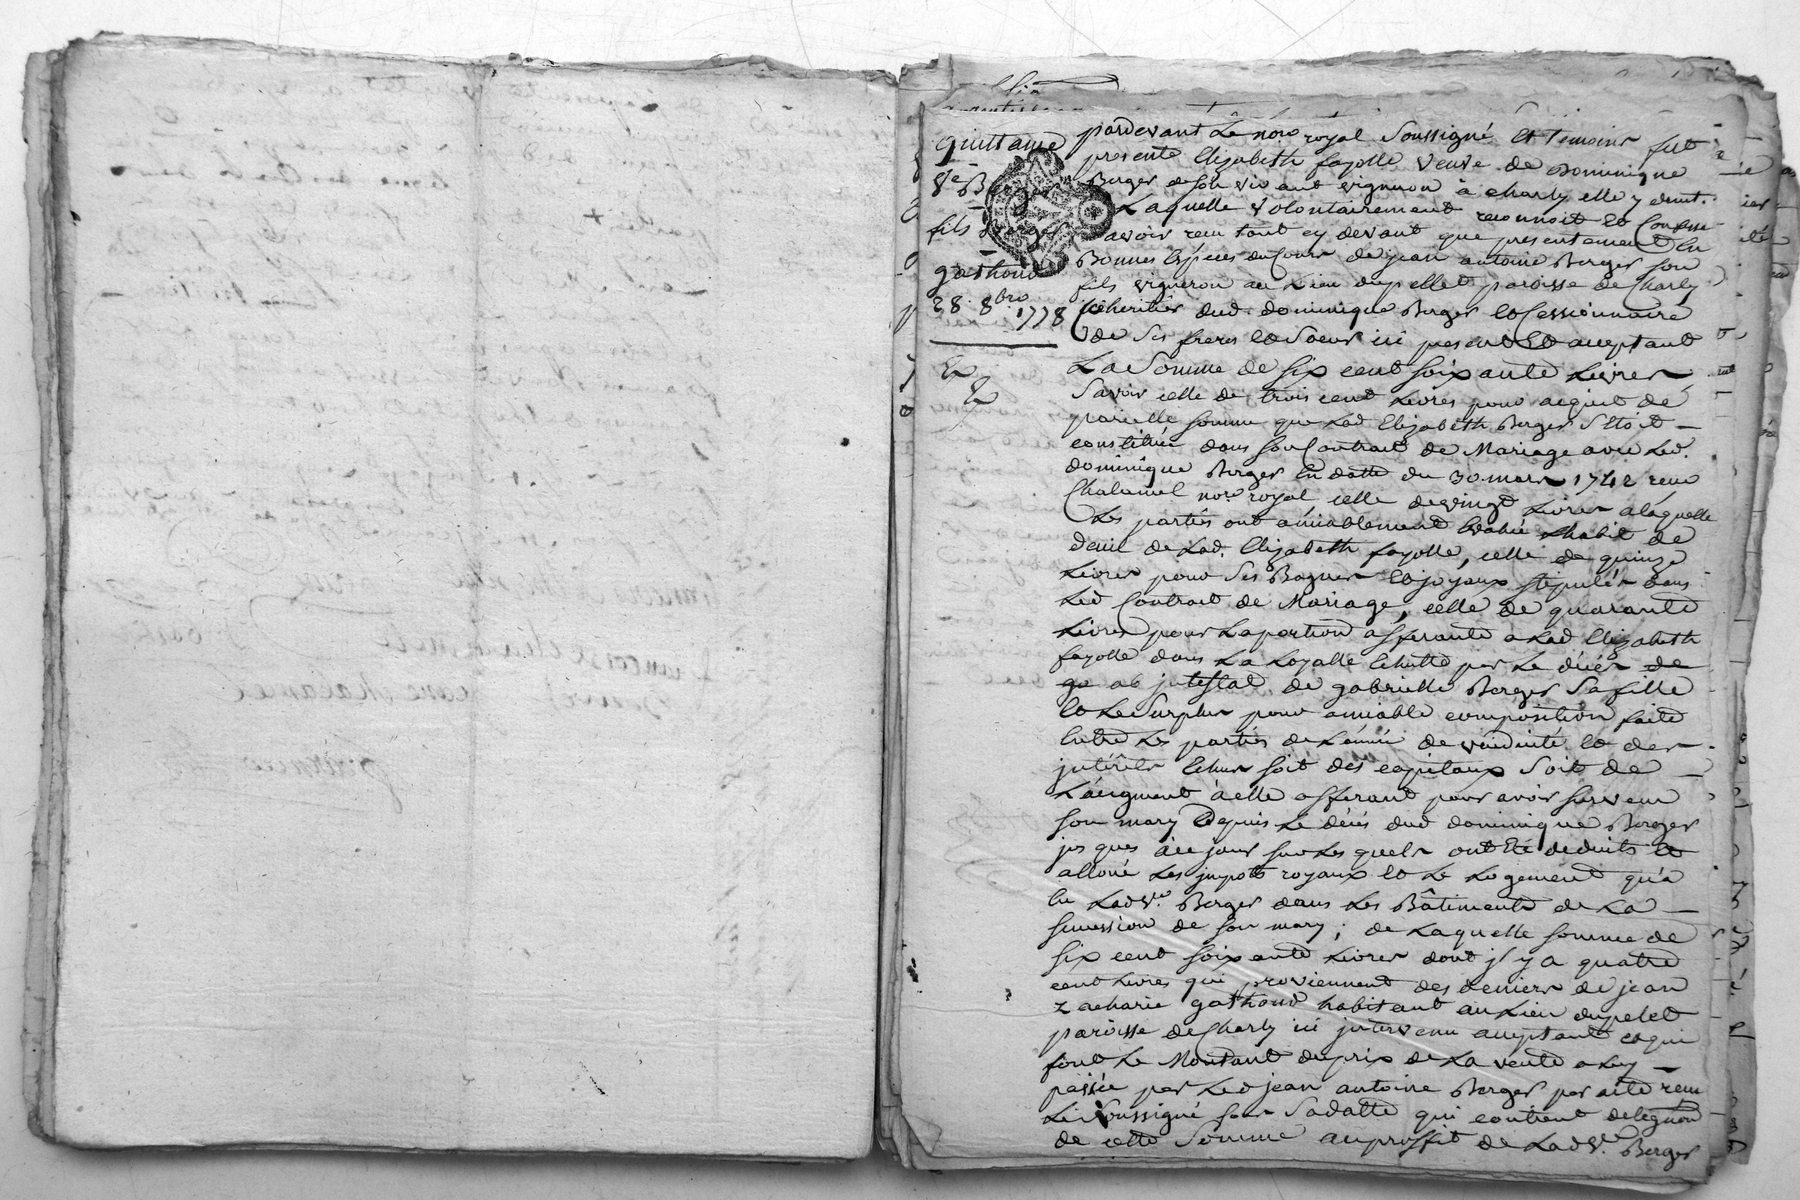 quittance
Ve Berger
fils Berger
gathond
28 8bre 1778
pardevant Le nore royal Soussigné et temoins fut
presente Elizabeth fayolle veuve de Dominique
Berger de son vivant vigneron à charly elle y demt.
Laquelle volontairement reconnoit et Confesse
avoir reçu tant cy devant que presentement En
Bonnes Espèces du Cours de jean antoine Berger son
fils vigneron au Lieu dupellet paroisse de Charly
Coheritier dud. dominique Berger et Cessionnaire
de Ses freres et Soeurs ici present et acceptant
La Somme de six cent soixante Livres
Savoir celle de trois cent Livres pour acquit de
pareille somme que Lad Elizabeth Berger S'etoit
constituée dans son Contrat de Mariage avec Led.
dominique Berger En datte du 30 mars 1742 reçu
Chalamel nore royal celle devingt Livres alaquelle
Les parties ont amiablement Evalué Lhabit de
deuil de Lad. Elizabeth fayolle, celle de quinze
Livres pour Ses Bagues et joyaux stipulés dans
Led Contrat de Mariage, celle de quarante
Livres pour Laportion afferante a Lad Elizabeth
fayolle dans La Loyalle Echutte par Le décès de
ge ab intestat de gabrielle Berger Safille
et Le Surplus pour amiable composition faite
Entre Les parties de Lannée de viduité et des
intérêts Echus soit des capitaux Soit de
L'augment à elle afferant pour avoir survecu
son mary Depuis Le décès dud dominique Berger
jusques àce jour sur Les quels ont Eté deduits et
alloué Les impots royaux et Le Logement qu'a
Eu Ladve. Berger dans Les Bâtiments de La
succession de son mary; de Laquelle somme de
six cent soixante Livres dont jl y a quatre
cent Livres qui proviennent des deniers de jean
zacharie gathond habitant au Lieu dupelet
paroisse de Charly ici intervenu acceptant et qui
font Le Montant duprix de La vente a Luy
passée par Led jean antoine Berger par acte reçu
Le Soussigné sous Sadatte qui contient delegaon
de cette Somme auproffit de Ladve. Berger